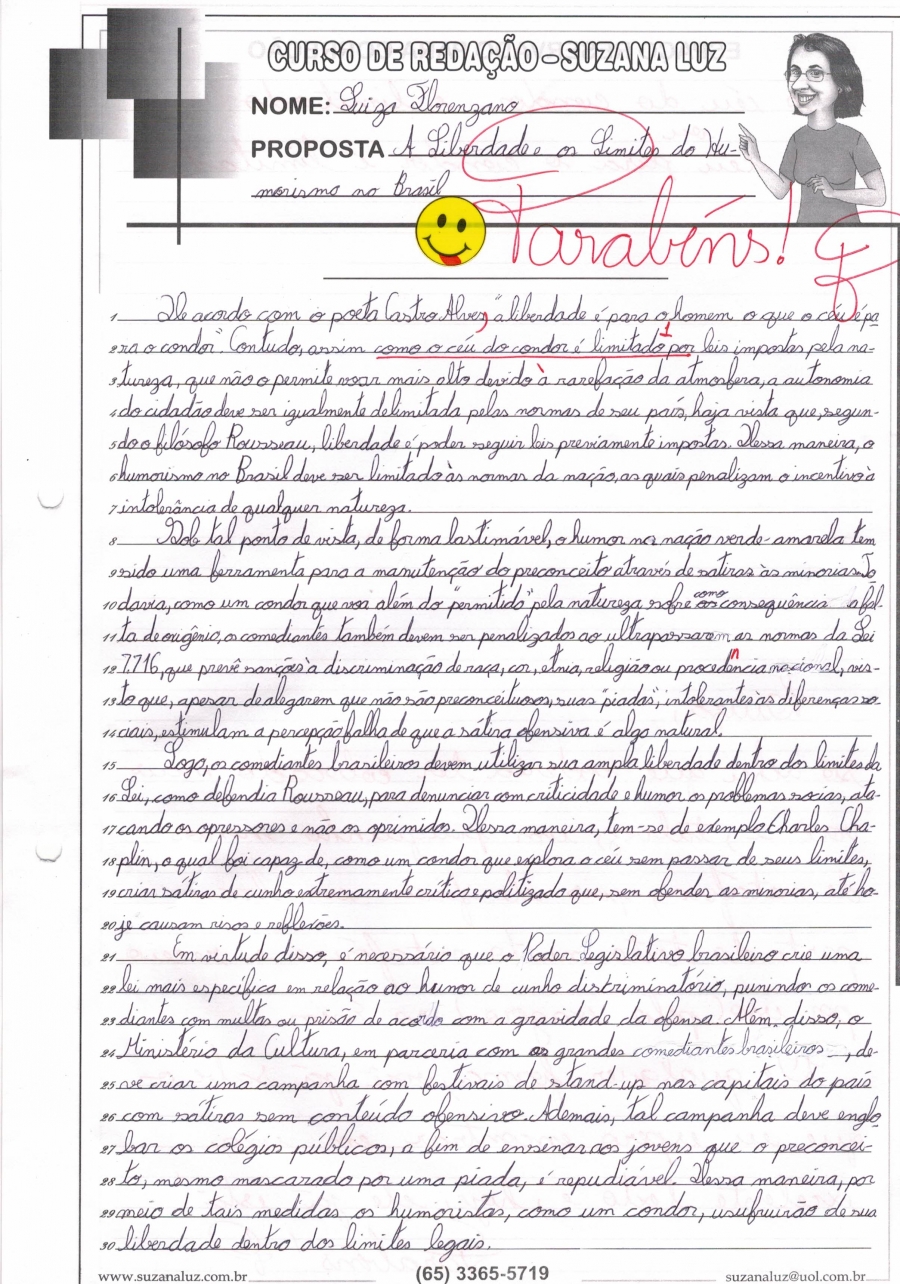 CURSO DE REDAÇÃO - SUZANA LUZ
NOME: Luiza Florenzano
PROPOSTA A Liberdade e os Limites do Hu-
morismo no Brasil
Parabéns!
1 De acordo com o poeta Castro Alves, "a liberdade é para o homem o que o céu é pa
2 ra o condor". Contudo, assim como o céu do condor é limitado por leis impostas pela na-
3 tureza, que não o permite voar mais alto devido à rarefação da atmosfera, a autonomia
4 do cidadão deve ser igualmente delimitada pelas normas de seu país, haja vista que, segun-
5 do o filósofo Rousseau, liberdade é poder seguir leis previamente impostas. Dessa maneira, o
6 humorismo no Brasil deve ser limitado às normas da nação, as quais penalizam o incentivo à
7 intolerância de qualquer natureza.
8 Sob tal ponto de vista, de forma lastimável, o humor na nação verde-amarela tem
9 sido uma ferramenta para a manutenção do preconceito através de sátiras às minorias. To
10 davia, como um condor que voa além do "permitido" pela natureza sofre como consequência a fal-
11 ta de oxigênio, os comediantes também devem ser penalizados ao ultrapassarem as normas da Lei
12 7.716, que prevê sanções à discriminação de raça, cor, etnia, religião ou procedência nacional, vis-
13 to que, apesar de alegarem que não são preconceituosos, suas "piadas", intolerantes às diferenças so
14 ciais, estimulam a percepção falha de que a sátira ofensiva é algo natural.
15 Logo, os comediantes brasileiros devem utilizar sua ampla liberdade dentro dos limites da
16 Lei, como defendia Rousseau, para denunciar com criticidade e humor os problemas sociais, ata-
17 cando os opressores e não os oprimidos. Dessa maneira, tem-se de exemplo Charles Cha-
18 plin, o qual foi capaz de, como um condor que explora o céu sem passar de seus limites,
19 criar sátiras de cunho extremamente crítico e politizado que, sem ofender as minorias, até ho-
20 je causam risos e reflexões.
21 Em virtude disso, é necessário que o Poder Legislativo brasileiro crie uma
22 lei mais específica em relação ao humor de cunho discriminatório, punindo os come-
23 diantes com multas ou prisão de acordo com a gravidade da ofensa. Além, disso, o
24 Ministério da Cultura, em parceria com os grandes comediantes brasileiros, de-
25 ve criar uma campanha com festivais de stand-up nas capitais do país
26 com sátiras sem conteúdo ofensivo. Ademais, tal campanha deve englo
27 bar os colégios públicos, a fim de ensinar aos jovens que o preconcei-
28 to, mesmo mascarado por uma piada, é repudiável. Dessa maneira, por
29 meio de tais medidas os humoristas, como um condor, usufruirão de sua
30 liberdade dentro dos limites legais.
www.suzanaluz.com.br (65) 3365-5719 suzanaluz@uol.com.br